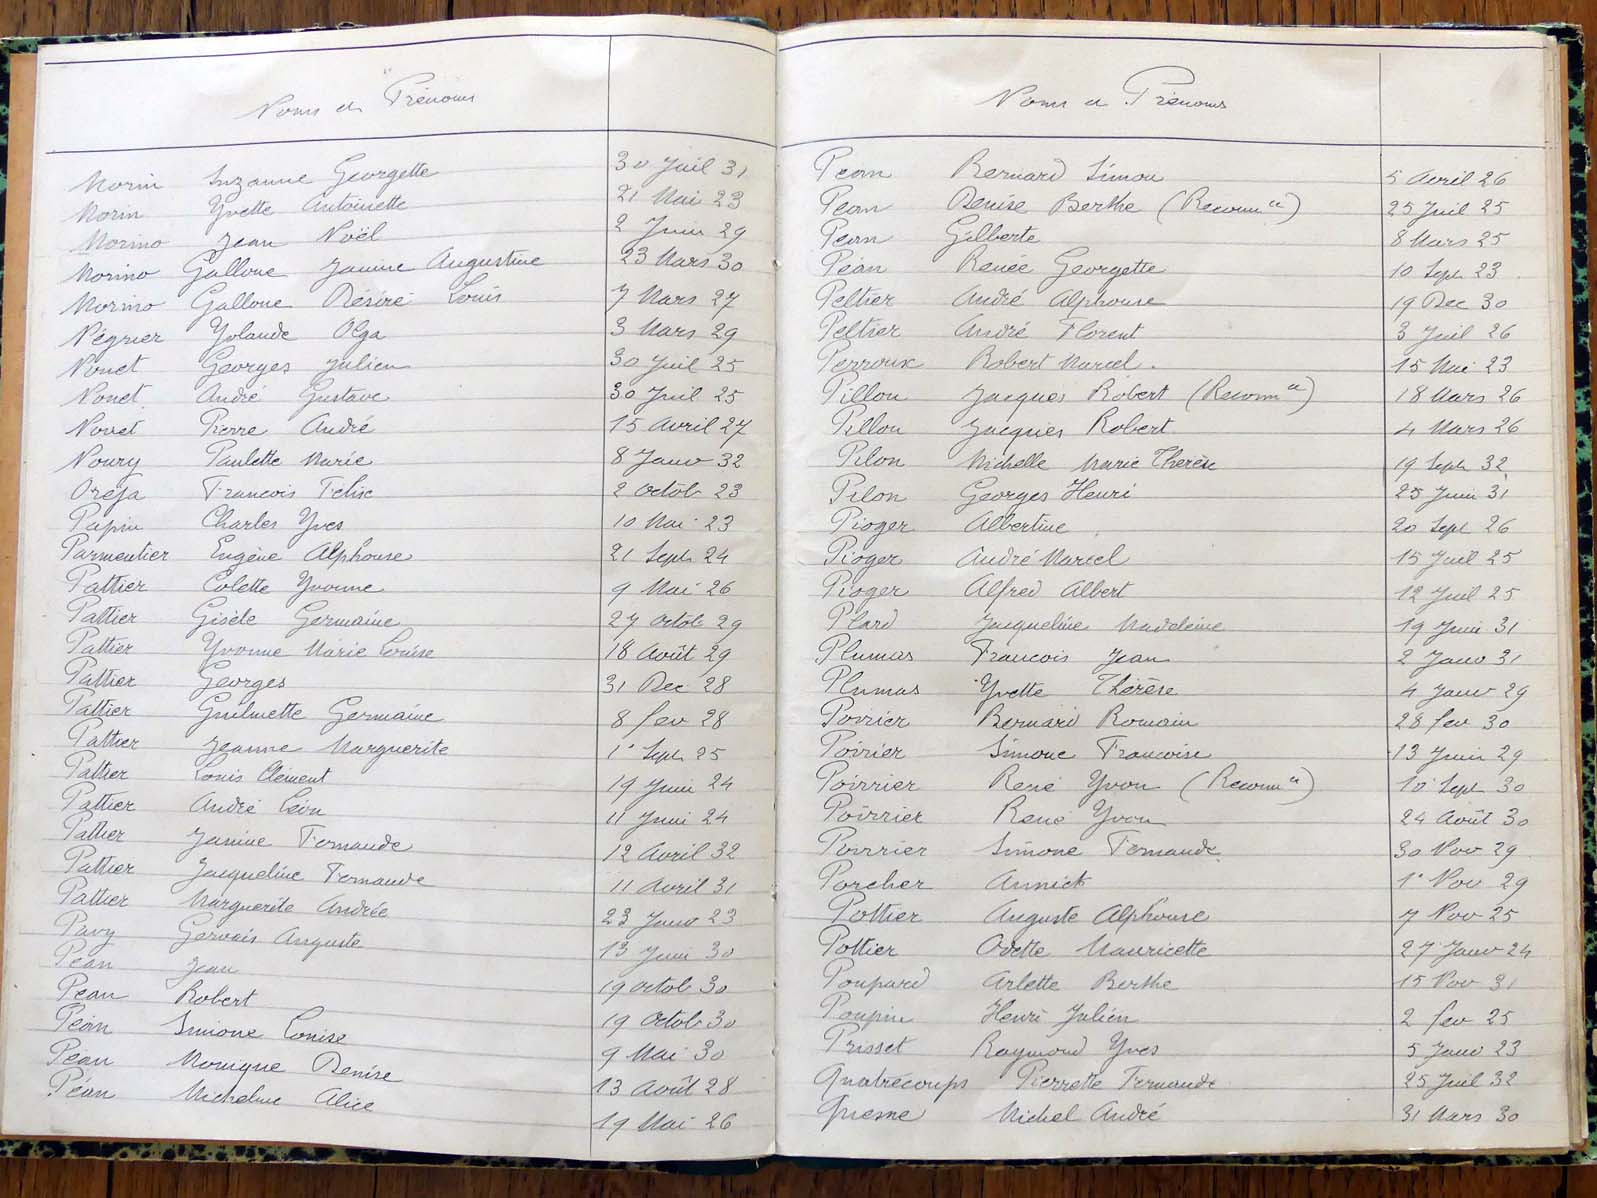 Noms et Prénoms
Morin Suzanne Georgette 30 Juil 31
Morin Yvette Antoinette 21 Mai 23
Morino Jean Noël 2 Juin 29
Morino Gallone Janine Augustine 23 Mars 30
Morino Gallone Désiré Louis 7 Mars 27
Négrier Yolande Olga 3 Mars 29
Nouet Georges Julien 30 Juil 25
Nouet André Gustave 30 Juil 25
Nouet Pierre André 15 Avril 27
Noury Paulette Marie 8 Janv 32
Oreja Francois Félix 2 Octob 23
Papin Charles Yves 10 Mai 23
Parmentier Eugène Alphonse 21 Sept 24
Pattier Colette Yvonne 9 Mai 26
Pattier Gisèle Germaine 27 Octob 29
Pattier Yvonne Marie Louise 18 Août 29
Pattier Georges 31 Dec 28
Pattier Guilmette Germaine 8 fev 28
Pattier Jeanne Marguerite 1° Sept 25
Pattier Louis Clément 19 Juin 24
Pattier André Léon 11 Juin 24
Pattier Janine Fernande 12 Avril 32
Pattier Jacqueline Fernande 11 Avril 31
Pattier Marguerite Andrée 23 Janv 23
Pavy Gervais Auguste 13 Juin 30
Péan Jean 19 Octob 30
Pean Robert 19 Octob 30
Péan Simone Louise 9 Mai 30
Péan Monique Denise 13 Août 28
Péan Micheline Alice 19 Mai 26
Noms et Prénoms
Pean Bernard Simon 5 Avril 26
Pean Denise Berthe (Reconn ce) 25 Juil 25
Pean Gilberte 8 Mars 25
Péan Renée Georgette 10 Sept 23
Peltier André Alphonse 19 Dec 30
Peltier André Florent 3 Juil 26
Perroux Robert Marcel 15 Mai 23
Pillon Jacques Robert (Reconn ce) 18 Mars 26
Pillon Jacques Robert 4 Mars 26
Pilon Michelle Marie Thérèse 19 Sept 32
Pilon Georges Henri 25 Juin 31
Pioger Albertine 20 Sept 26
Pioger André Marcel 15 Juil 25
Pioger Alfred Albert 12 Juil 25
Plard Jacqueline Madeleine 19 Juin 31
Plumas Francois Jean 2 Janv 31
Plumas Yvette Thérèse 4 Janv 29
Poirier Bernard Romain 28 fev 30
Poirier Simone Francoise 13 Juin 29
Poirrier René Yvon (Reconn ce) 10 Sept 30
Poirrier René Yvon 24 Août 30
Poirrier Simone Fernande 30 Nov 29
Porcher Annick 1° Nov 29
Pottier Auguste Alphonse 7 Nov 25
Pottier Odette Mauricette 27 Janv 24
Poupard Arlette Berthe 15 Nov 31
Poupin Henri Julien 2 fev 25
Prisset Raymond Yves 5 Janv 23
Quatrecoups Pierrette Fernande 25 Juil 32
Quesne Michel André 31 Mars 30